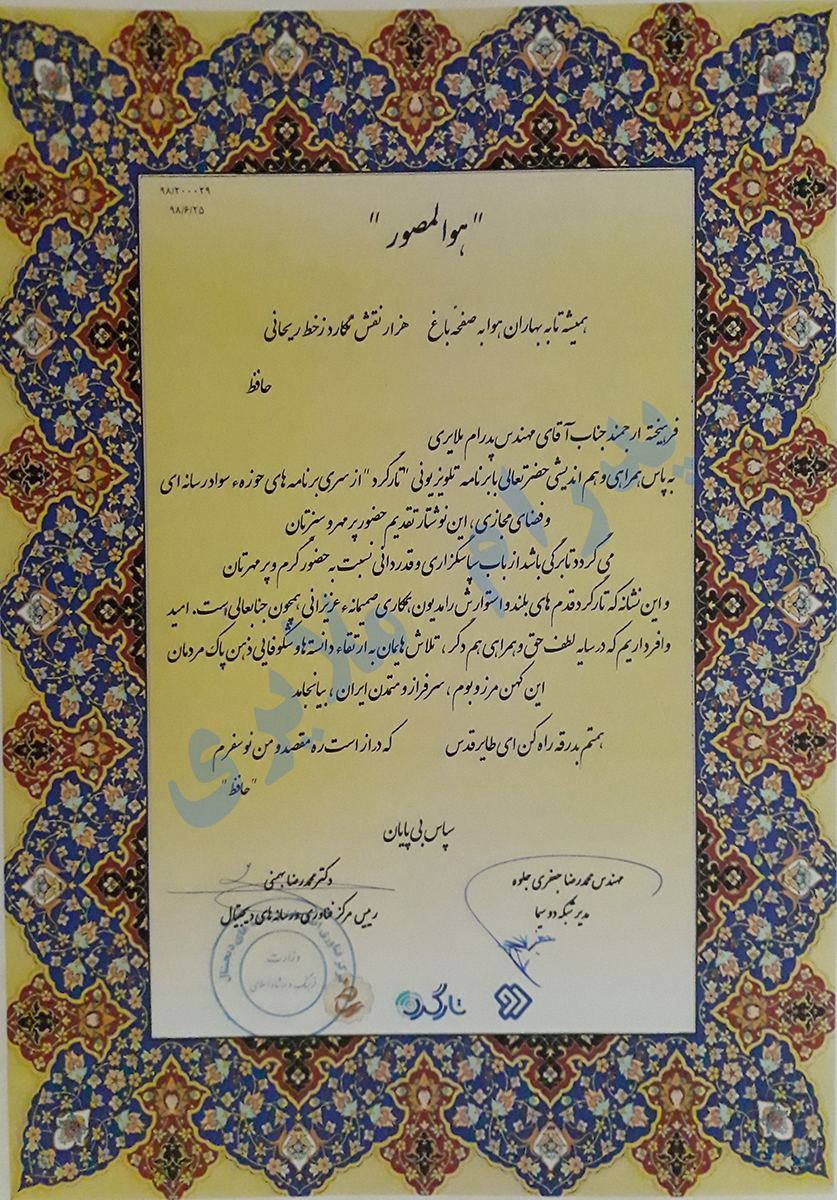 ۹۸/۲۰۰۰۲۹
۹۸/۶/۲۵
"هوالمصور"
همیشه تا به بهاران هوا به صفحهٔ باغ هزار نقش نگارد ز خط ریحانی
حافظ
فرهیخته ارجمند جناب آقای مهندس پدرام ملایری
به پاس همراهی و هم اندیشی حضرتعالی با برنامه تلویزیونی "تارگرد" از سری برنامه های حوزهء سواد رسانه ای
و فضای مجازی، این نوشتار تقدیم حضور پر مهر و سبزتان
می گردد تا برگی باشد از باب سپاسگزاری و قدردانی نسبت به حضور گرم و پر مهرتان
و این نشانه که تارگرد قدم های بلند و استوارش را مدیون همکاری صمیمانهء عزیزانی همچون جنابعالی است. امید
وافر داریم که در سایه لطف حق و همراهی هم دگر، تلاش هایمان به ارتقاء دانسته ها و شکوفایی ذهن پاک مردمان
این کهن مرز و بوم، سرفراز و متمدن ایران، بیانجامد
همتم بدرقه راه کن ای طایر قدس که دراز است ره مقصد و من نوسفرم
"حافظ"
سپاس بی پایان
مهندس محمدرضا جعفری جلوه دکتر محمدرضا بهمنی
مدیر شبکه دو سیما رییس مرکز فناوری و رسانه های دیجیتال
وزارت
فرهنگ و ارشاد اسلامی
تارگرد
پدرام ملایری